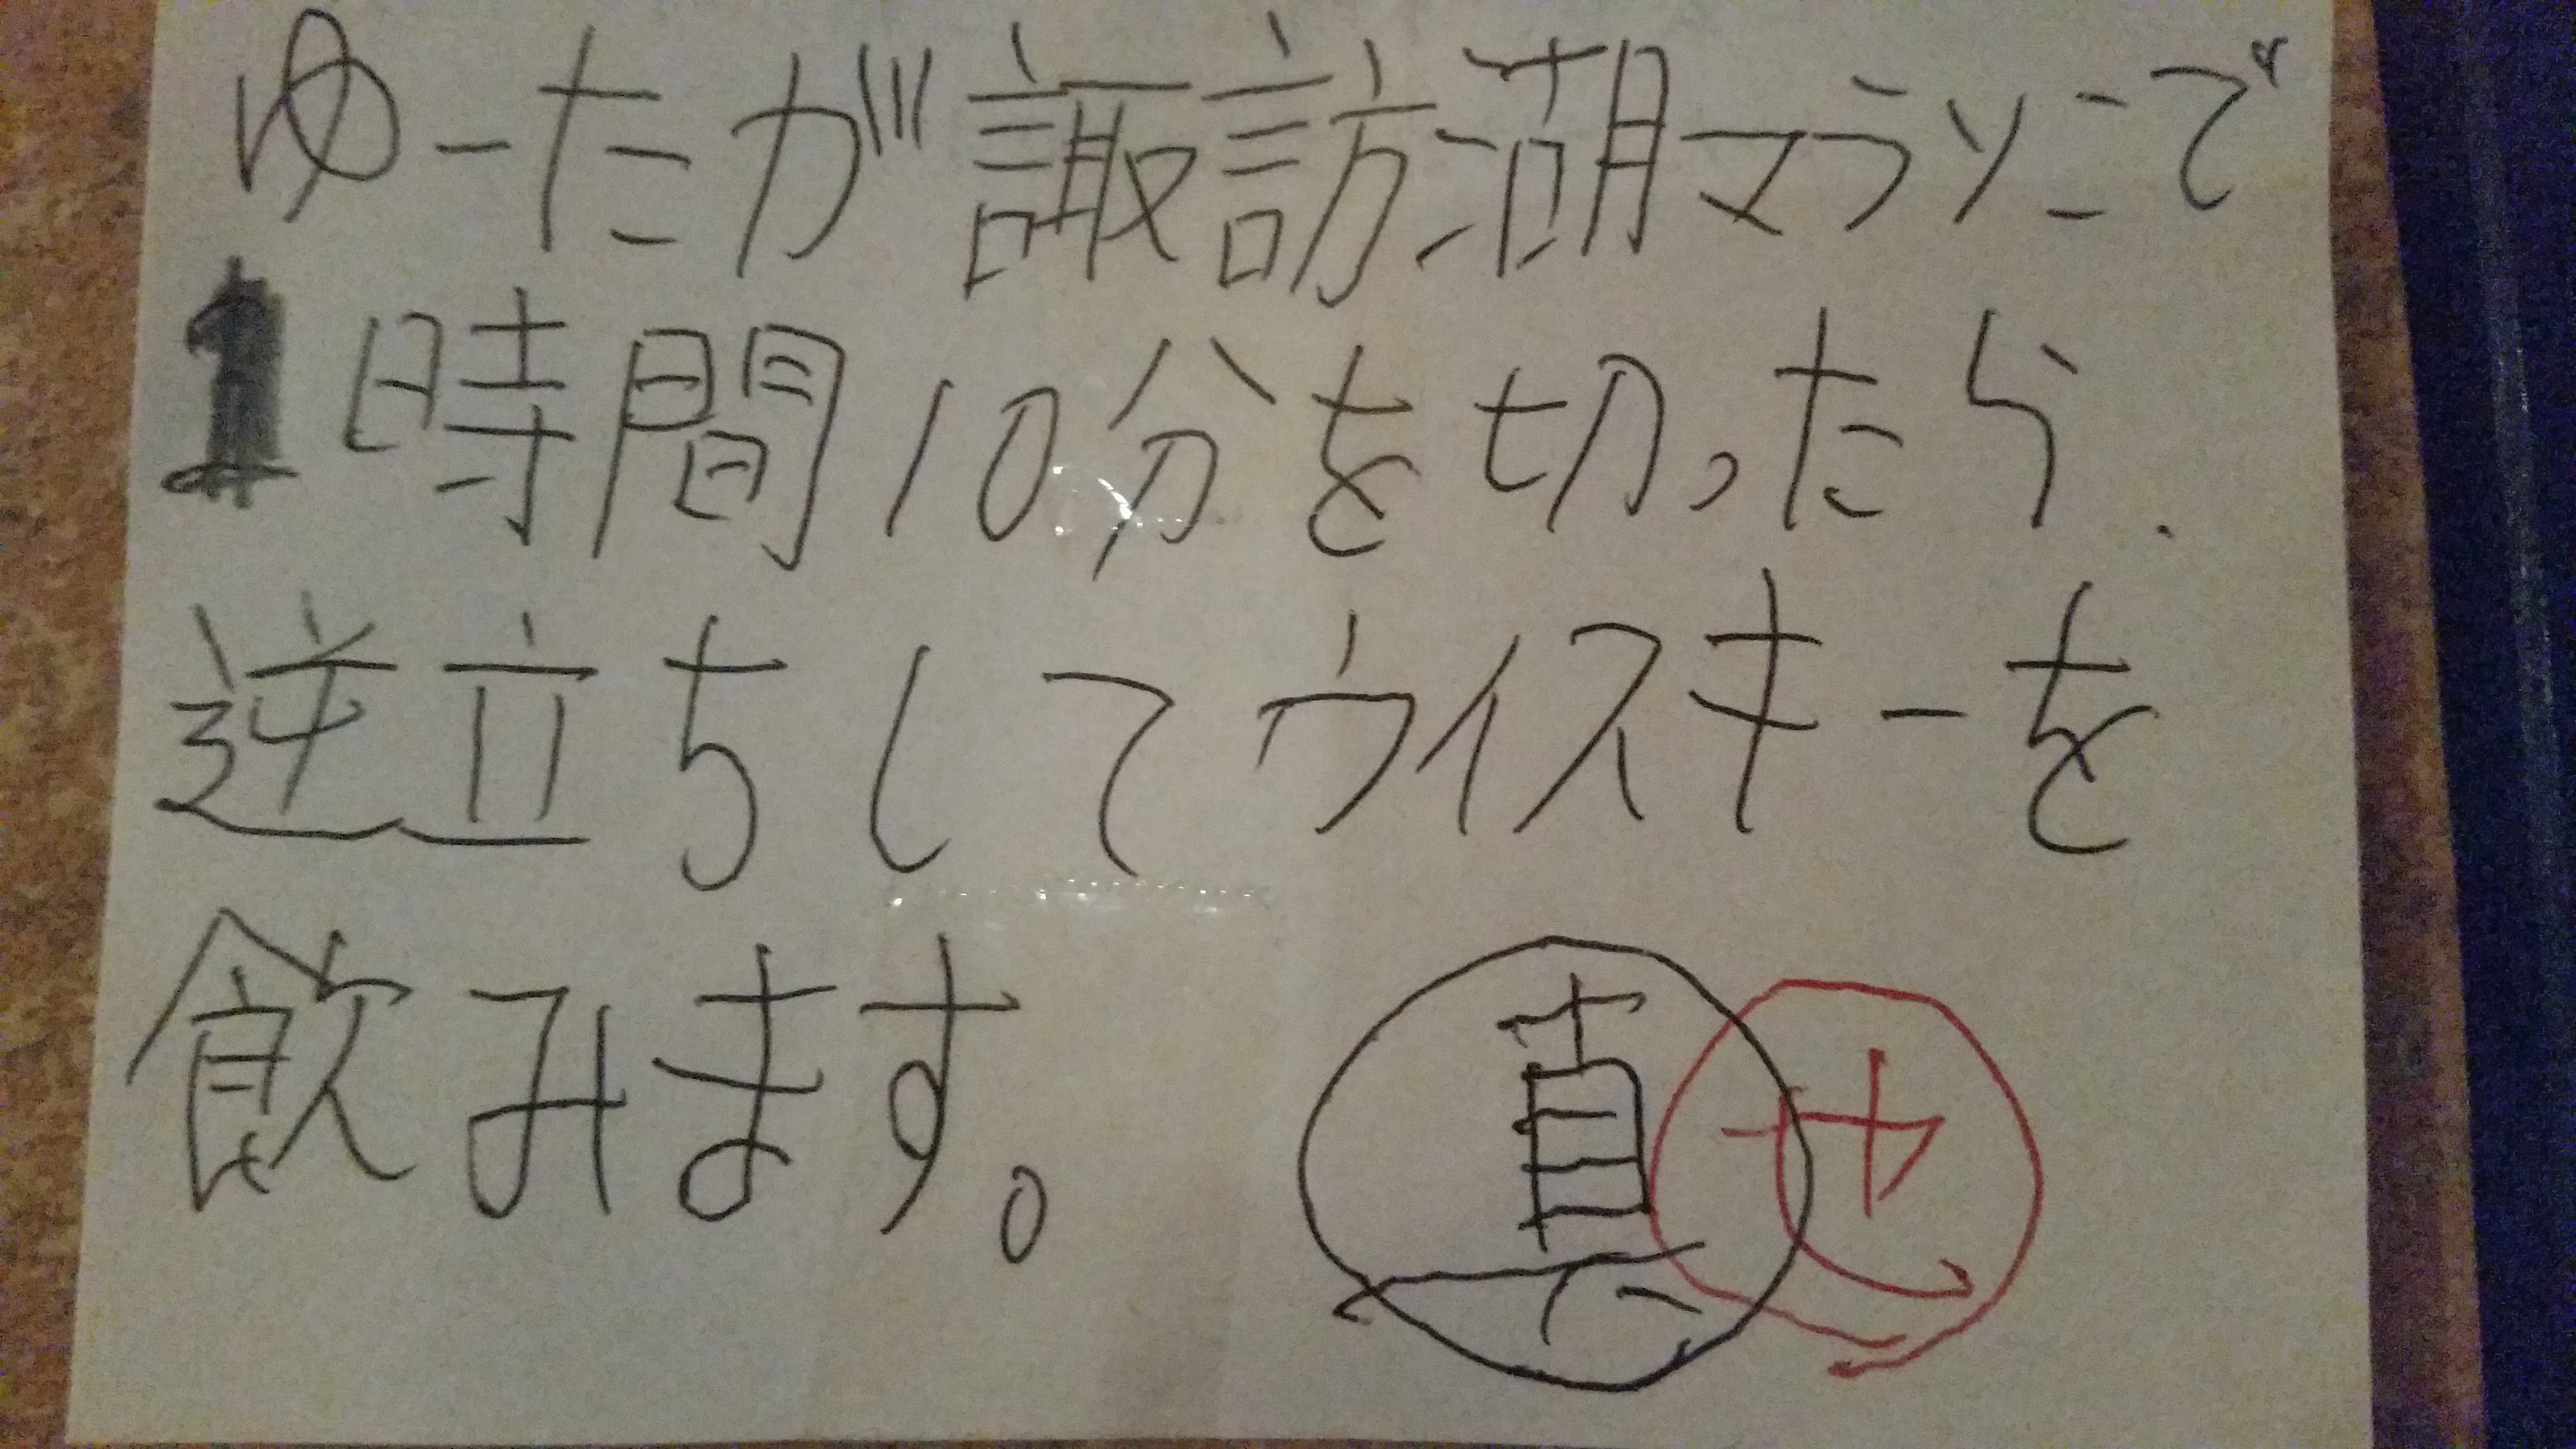 ゆーたが諏訪湖マラソンで
1時間10分を切ったら、
逆立ちしてウイスキーを
飲みます。
真 せ